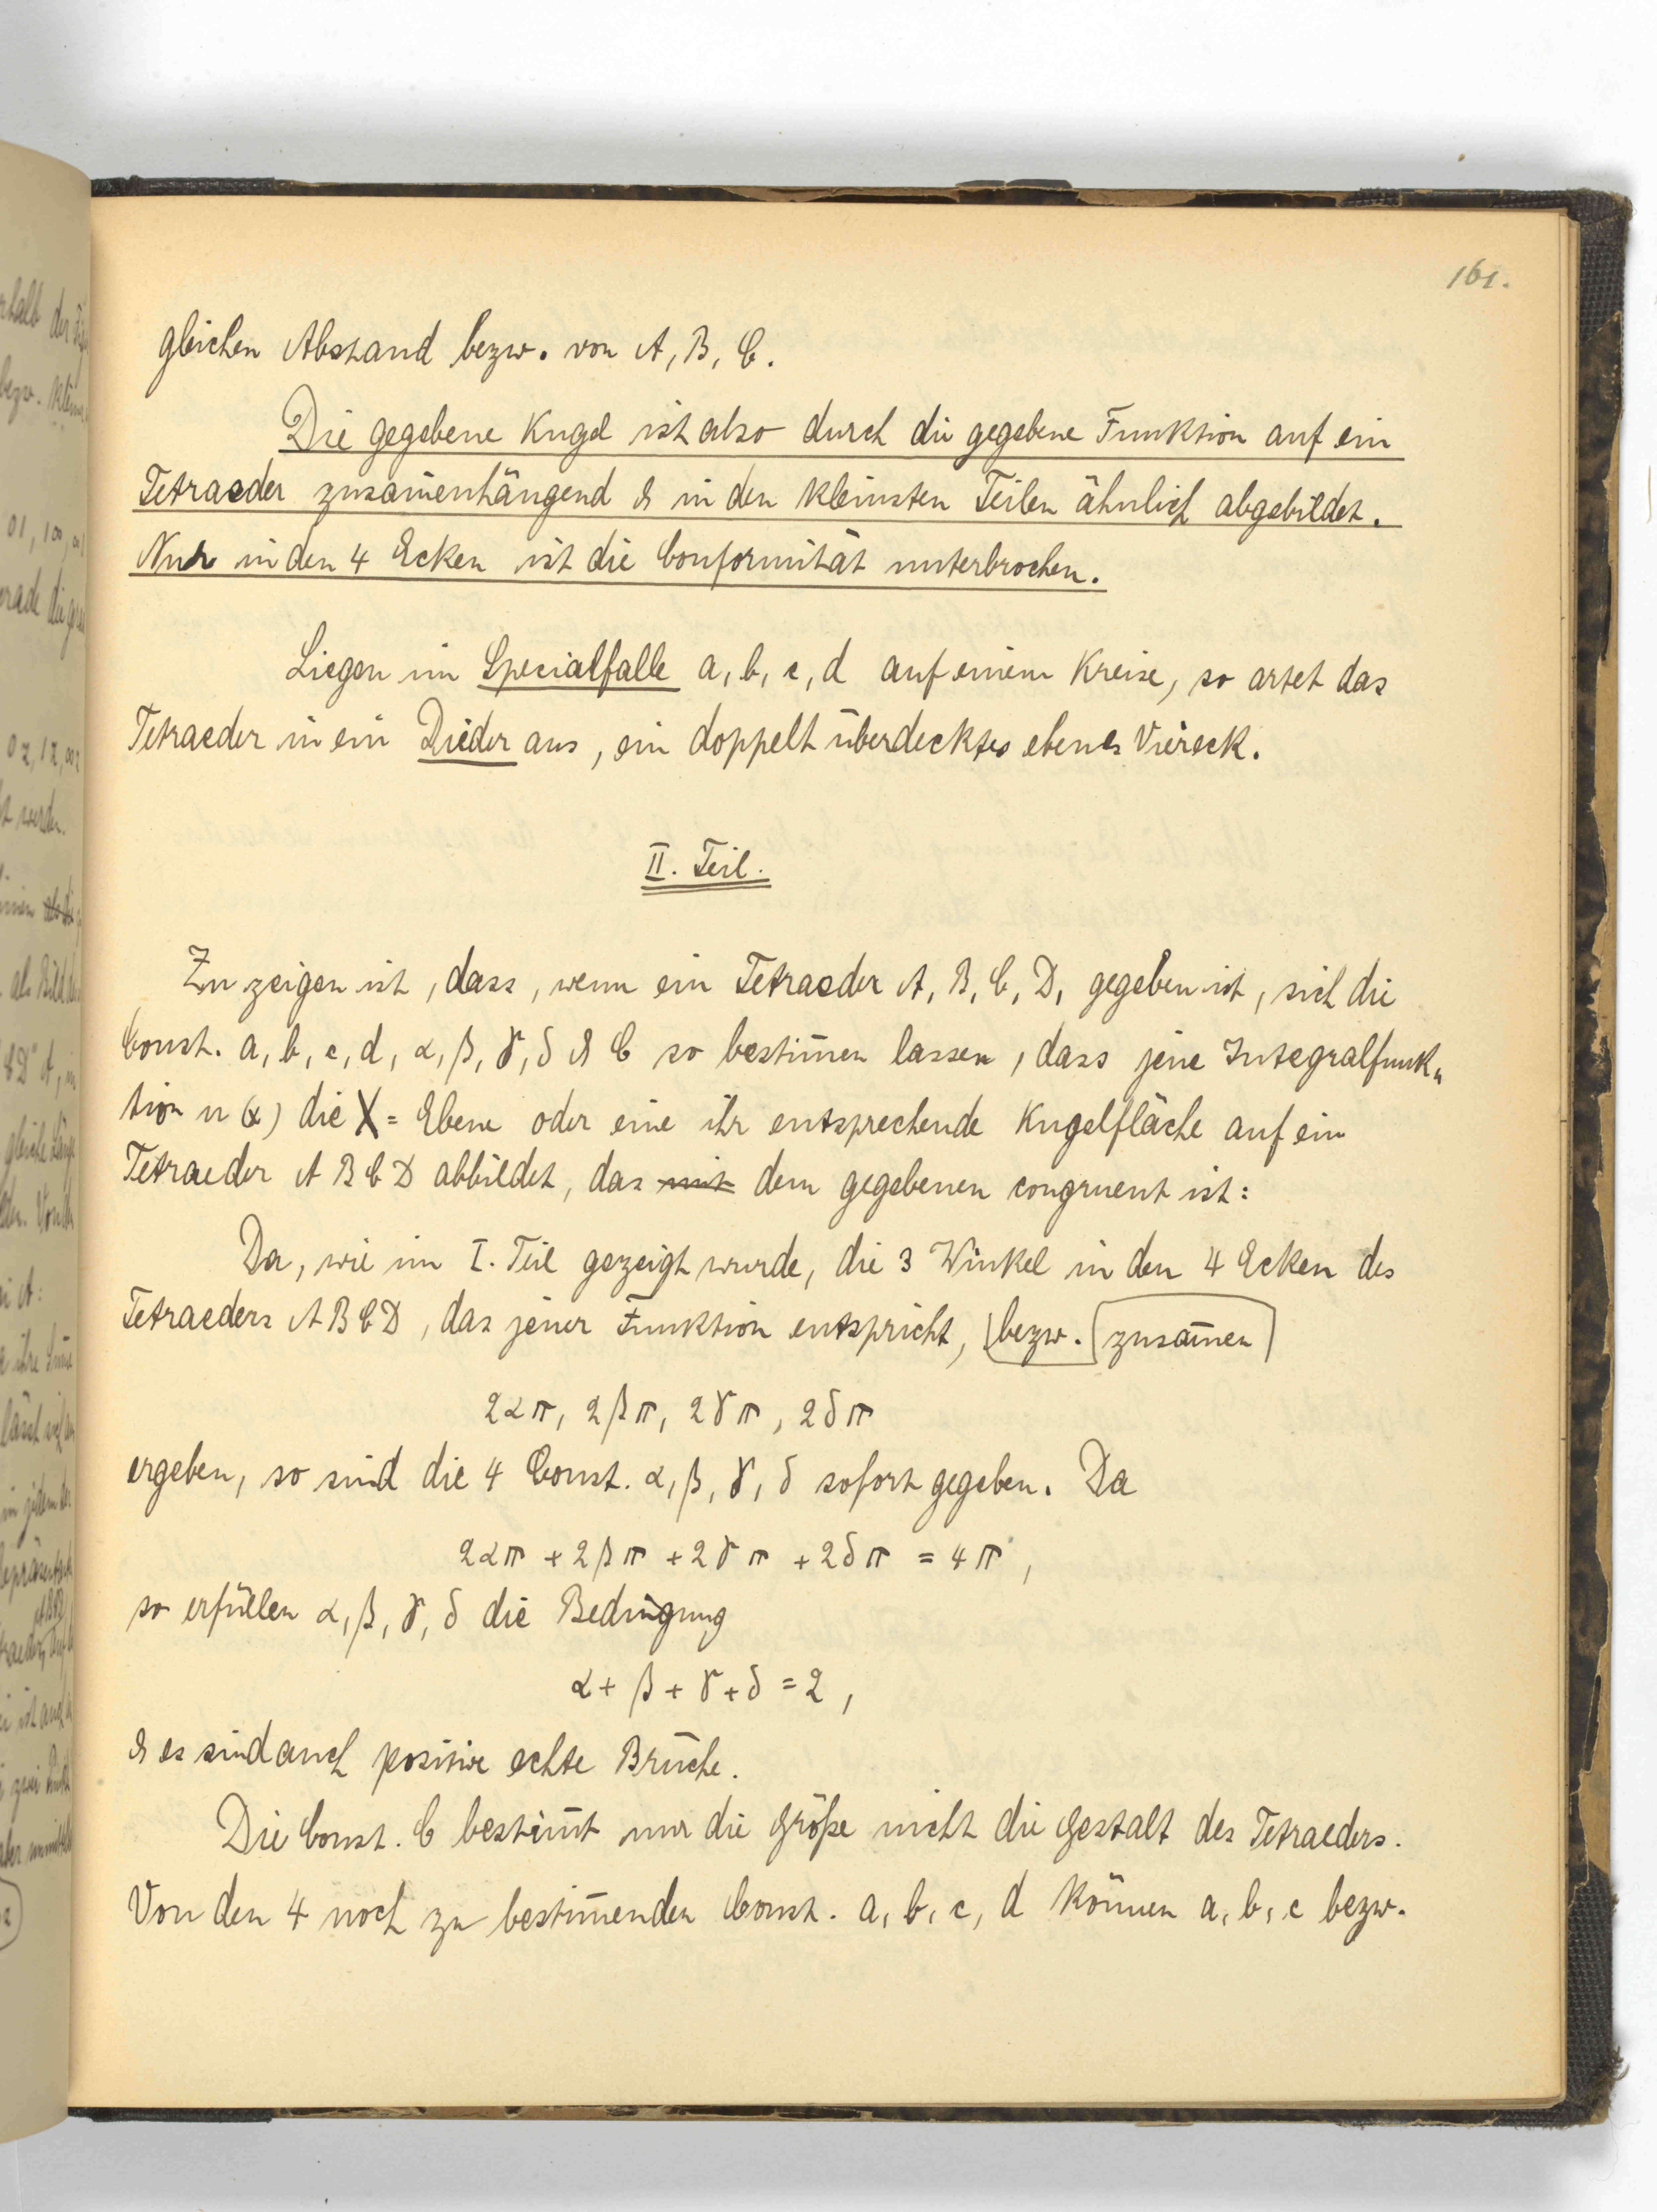 161.
gleichen Abstand bezw. von A, B, C.
Die gegebene Kugel ist also durch die gegebene Funktion auf ein
Tetraeder zusam̅enhängend & in den kleinsten Teilen ähnlich abgebildet.
Nur in den 4 Ecken ist die Conformität unterbrochen.
Liegen im Specialfalle a, b, c, d auf einem Kreise, so artet das
Tetraeder in ein Dieder aus, ein doppelt überdecktes ebenes Viereck.
II. Teil.
Zu zeigen ist, dass, wenn ein Tetraeder A, B, C, D, gegeben ist, sich die
Const. a, b, c, d, α, β, γ, δ & C so bestim̅en lassen, dass jene Integralfunk„
tion u(x) die X = Ebene oder eine ihr entsprechende Kugelfläche auf ein
Tetraeder A B C D abbildet, das mit dem gegebenen congruent ist:
Da, wie im I. Teil gezeigt wurde, die 3 Winkel in den 4 Ecken des
Tetraeders A B C D, das jener Funktion entspricht, bezw. zusam̅en
2απ, 2βπ, 2γπ, 2δπ
ergeben, so sind die 4 Const. α, β, γ, δ sofort gegeben. Da
2απ + 2βπ + 2γπ + 2δπ = 4π,
so erfüllen α, β, γ, δ die Bedingung
α + β + γ + δ = 2,
& es sind auch positive echte Brüche.
Die Const. C bestim̅t nur die Größe nicht die Gestalt des Tetraeders.
Von den 4 noch zu bestim̅enden Const. a, b, c, d können a, b, c bezw.